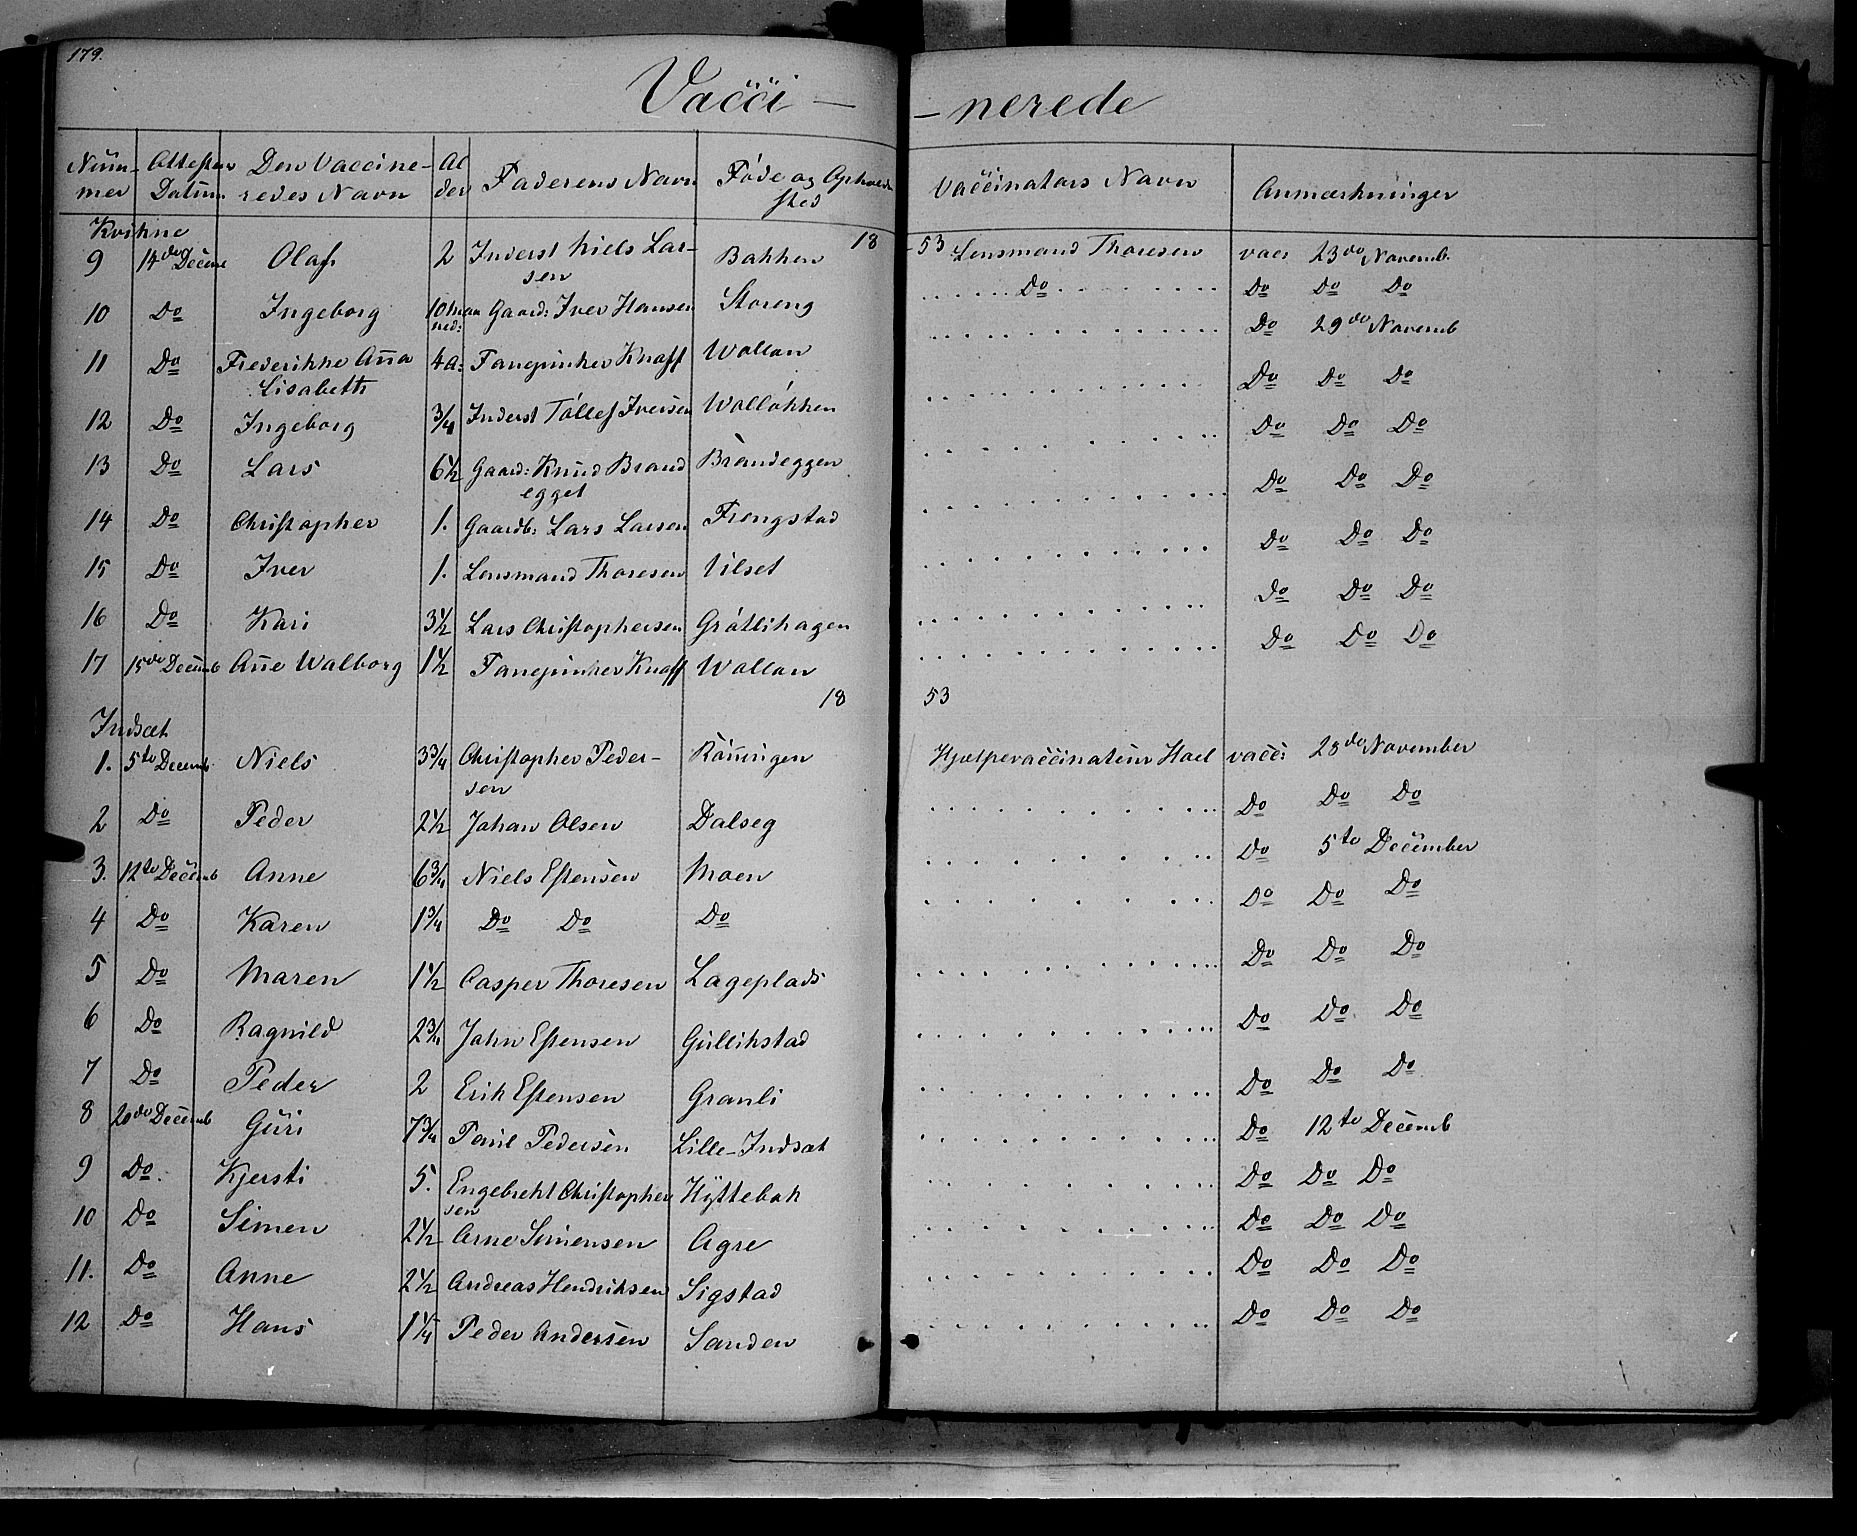 179.
Vacci – – nerede
Num- mer | Attestens Datum | Den Vaccine- redes Navn | Al der | Faderens Navn | Føde og Opholds sted | Vaccinators Navn | Anmærkninger
Kvikne 18 53
9 | 14de Decemb | Olaf | 2 | Inderst Niels Lar- sen | Bakken | Lensmand Thoresen | vacc 23de Novemb.
10 | Do | Ingeborg | 10 maa ned: | Gaard: Iver Hansen | Storeng | Do | Do Do Do
11 | Do | Frederikke Aña Lisabeth | 4 a: | Fanejunker Knoff | Wollan | | Do 29de Novemb
12 | Do | Ingeborg | 3/4 | Inderst Tøllef Iversen | Walløkken | | Do Do Do
13 | Do | Lars | 6 1/2 | Gaard: Knud Brand egget | Brandeggen | | Do Do Do
14 | Do | Christopher | 1. | Gaardb: Lars Larsen | Frengstad | | Do Do Do
15 | Do | Iver | 1. | Lensmand Thoresen | Vilset | | Do Do Do
16 | Do | Kari | 3 1/2 | Lars Christophersen | Grøtlihagen | | Do Do Do
17 | 15de Decemb | Añe Walborg | 1 1/2 | Fanejunker Knoff | Wollan | | Do Do Do
18 53
Indset
1. | 5te Decemb | Niels | 3 3/4 | Christopher Peder- sen | Røñingen | Hjælpevaccinateur Hoel | vacc: 28de November
2 | Do | Peder | 2 1/2 | Johan Olsen | Dalseg | | Do Do Do
3. | 12te Decemb | Anne | 6 3/4 | Niels Estensen | Moen | | Do 5te December
4 | Do | Karen | 1 3/4 | Do Do | Do | | Do Do Do
5 | Do | Maren | 1 1/2 | Casper Thoresen | Lageplads | | Do Do Do
6 | Do | Ragnild | 2 3/4 | John Estensen | Gullikstad | | Do Do Do
7 | Do | Peder | 2 | Erik Estensen | Granli | | Do Do Do
8 | 20de Decemb | Guri | 7 3/4 | Paul Pedersen | Lille-Indset | | Do 12te Decemb
9 | Do. | Kjersti | 5. | Engebreht Christopher sen | Hyttebak | | Do Do Do
10 | Do | Simen | 2 1/2 | Arne Simensen | Agre | | Do Do Do
11. | Do | Anne | 2 1/2 | Andreas Hendriksen | Sigstad | | Do Do Do
12 | Do | Hans | 1 1/4 | Peder Andersen | Sanden | | Do Do Do